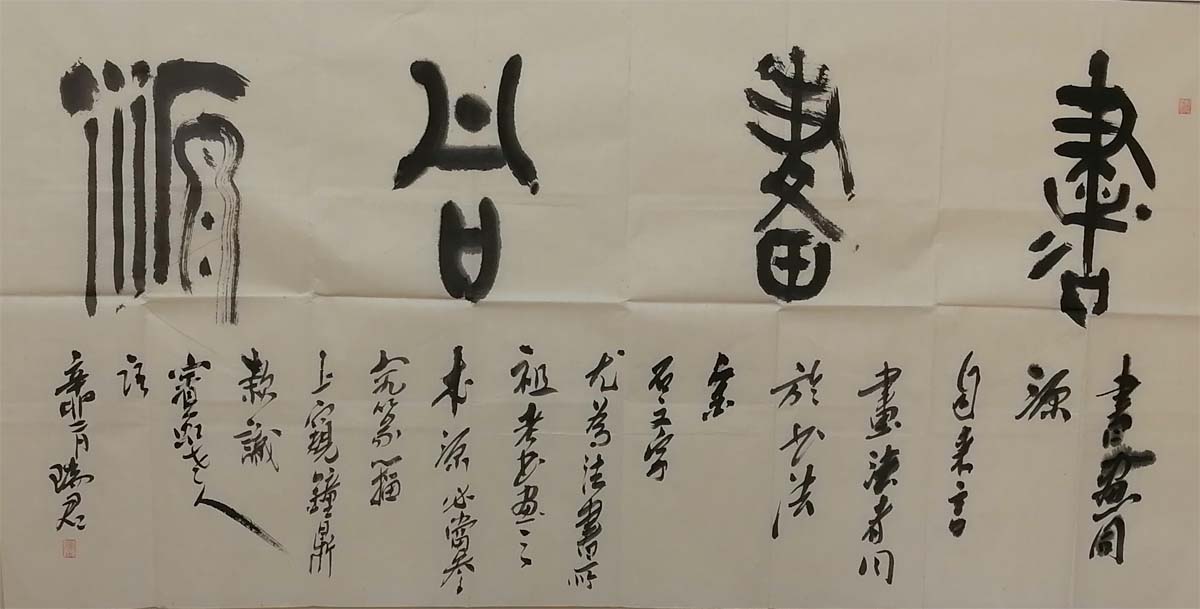 書畫同源
書畫同
源
自來言
畫法者同
於書法
金
石文字
尤為法書所
祖考書畫之
本源必當參
究篆籀
上窺鐘鼎
款識
賓虹老人
語
辛卯二月瑞君